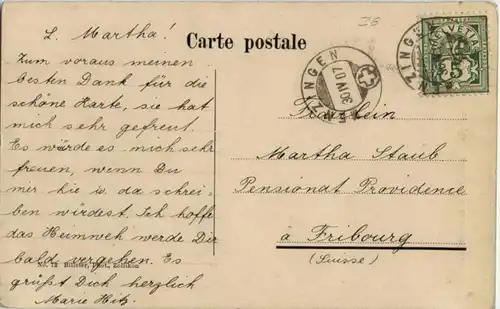 L. Martha!
Zum voraus meinen
besten Dank für die
schöne Karte, sie hat
mich sehr gefreut.
Es würde es mich sehr
freuen, wenn Du
mir hie u. da schrei-
ben würdest. Ich hoffe
das Heimweh werde Dir
bald vergehen. Es
grüßt Dich herzlich
Marie Hitz.
Carte postale
30 IV 07
HELVETIA
5
Fräulein
Martha Staub
Pensionat Providence
à Fribourg
(Suisse)